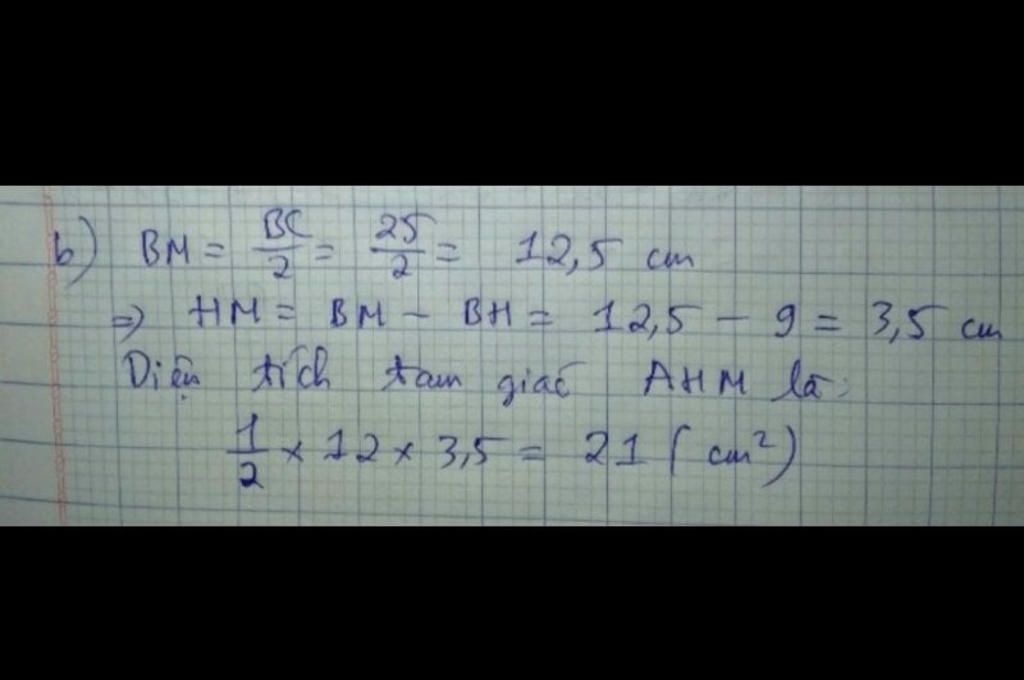 b) BM = BC/2 = 25/2 = 12,5 cm
=> HM = BM - BH = 12,5 - 9 = 3,5 cm
Diện tích tam giác AHM là:
1/2 x 12 x 3,5 = 21 (cm²)